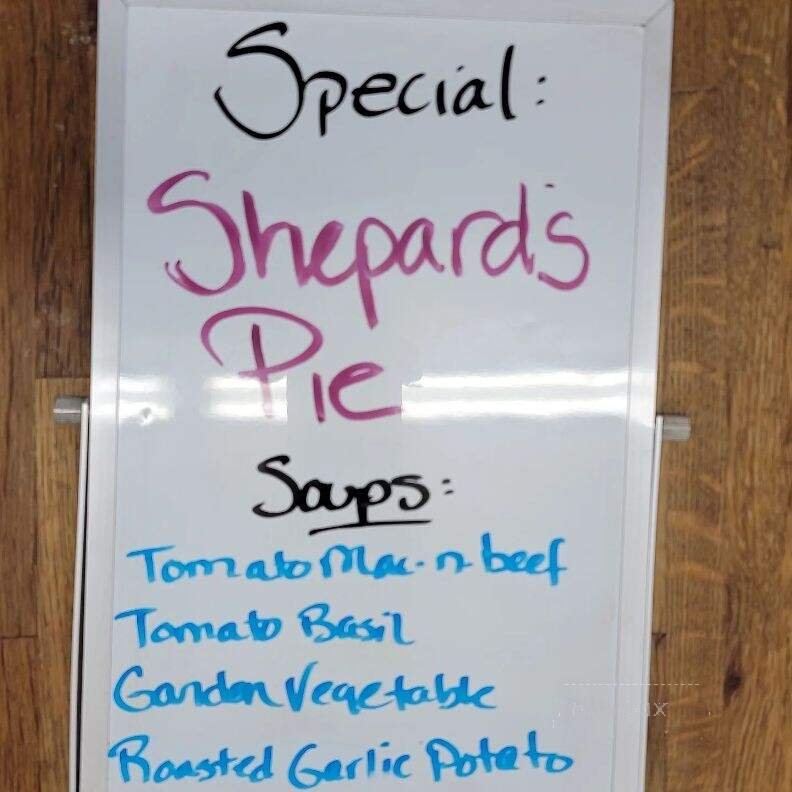 Special:
Shepard's
Pie
Soups:
Tomato Mac-n-beef
Tomato Basil
Garden Vegetable
Roasted Garlic Potato